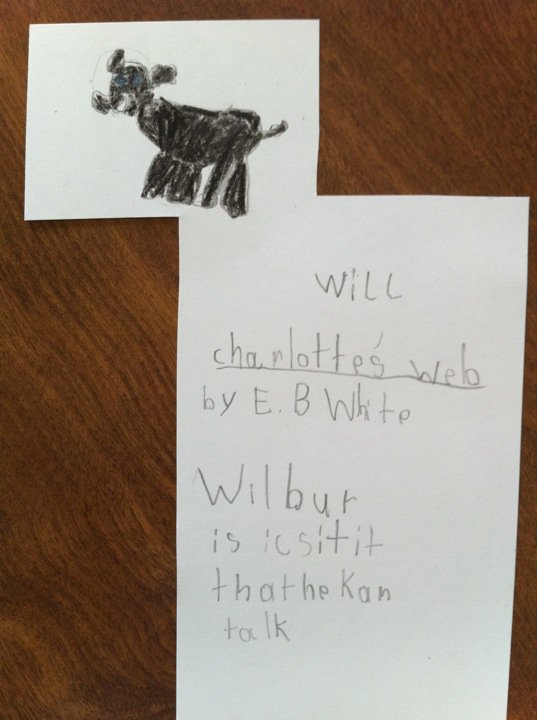 WiLL
charlotte's web
by E. B White
Wilbur
is icsitit
thathe Kan
talk